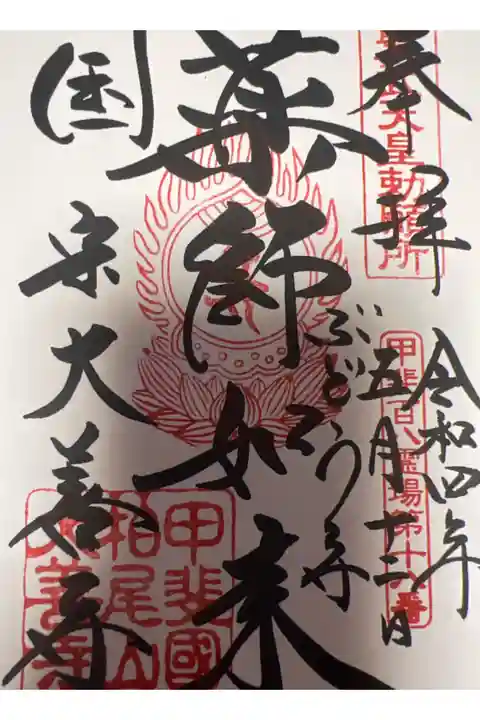 奉拝
聖武天皇勅願所
令和四年
五月十二日
甲斐百八霊場第十六番
ぶどう寺
薬師如来
国宝大善寺
甲斐國
柏尾山
大善寺